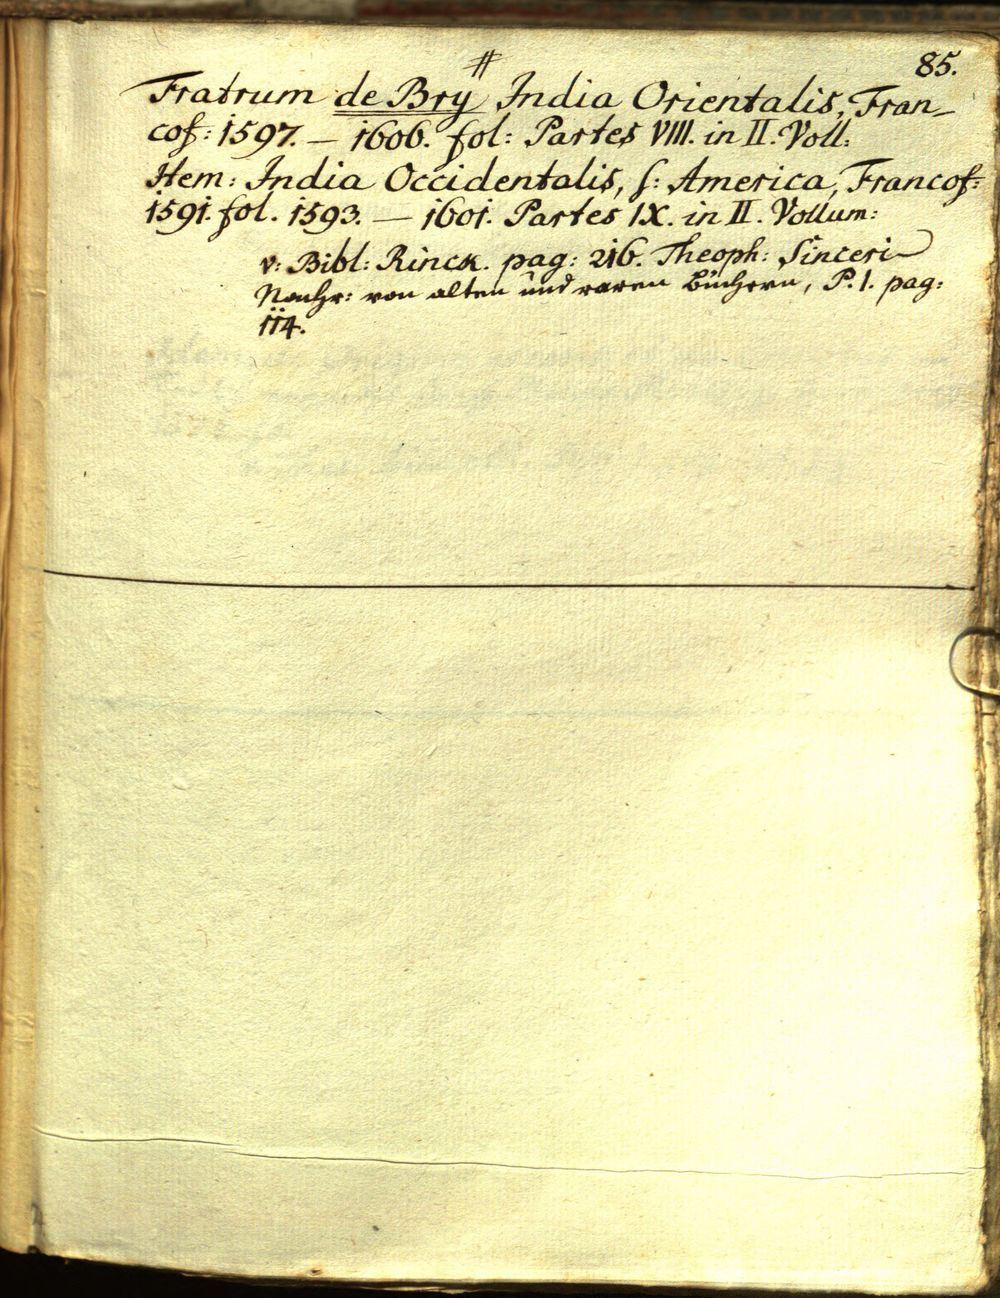 #
85.
Fratrum de Bry India Orientalis, Fran-
cof: 1597. — 1606. fol: Partes VIII. in II. Voll:
Item: India Occidentalis, s: America, Francof:
1591. fol. 1593. — 1601. Partes IX. in II. Vollum:
v: Bibl: Rinck. pag: 216. Theoph: Sinceri
Nachr: von alten und raren Büchern, P. I. pag:
114.